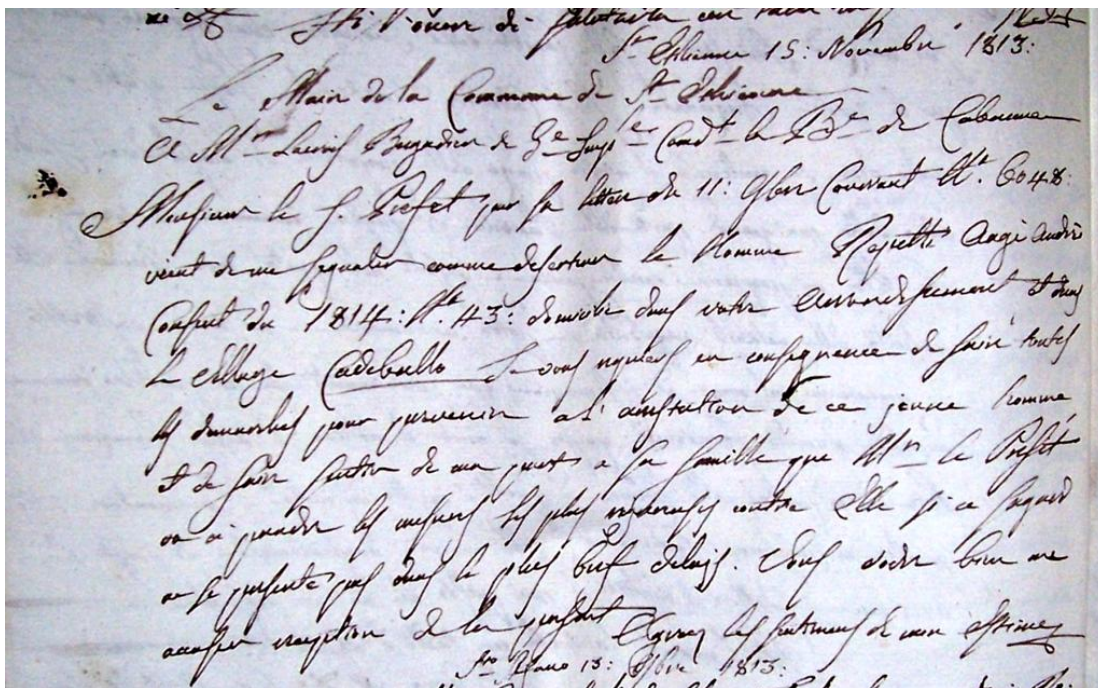 J'ai l'honneur de
St. Etienne 15: Novembre 1813:
Le Maire de la Commune de St. Etienne
A Mr. Brigadier de Comdt. la Be. de Cabanne
Monsieur le S. Prefet par sa lettre du 11: 9bre Courrant N°. 6048:
vient de me signaler comme deserteur le Nomme Repetti Ange André
Conscrit de 1814: N°. 43: domicilié dans votre arrondissement et dans
le Village Cadeballo Je vous requiers en consequence de faire toutes
les demarches pour parvenir a l'arrestation de ce jeune homme
et de faire sentir de ma part a sa famille que Mr. le Préfet
va à prendre les mesures les plus rigoureuses contre Elle si ce fuyard
ne se presente pas dans le plus bref delais. Vous voudrez bien me
accuser reception de la presente Agreez les sentimens de mon estime
13: 9bre 1813: